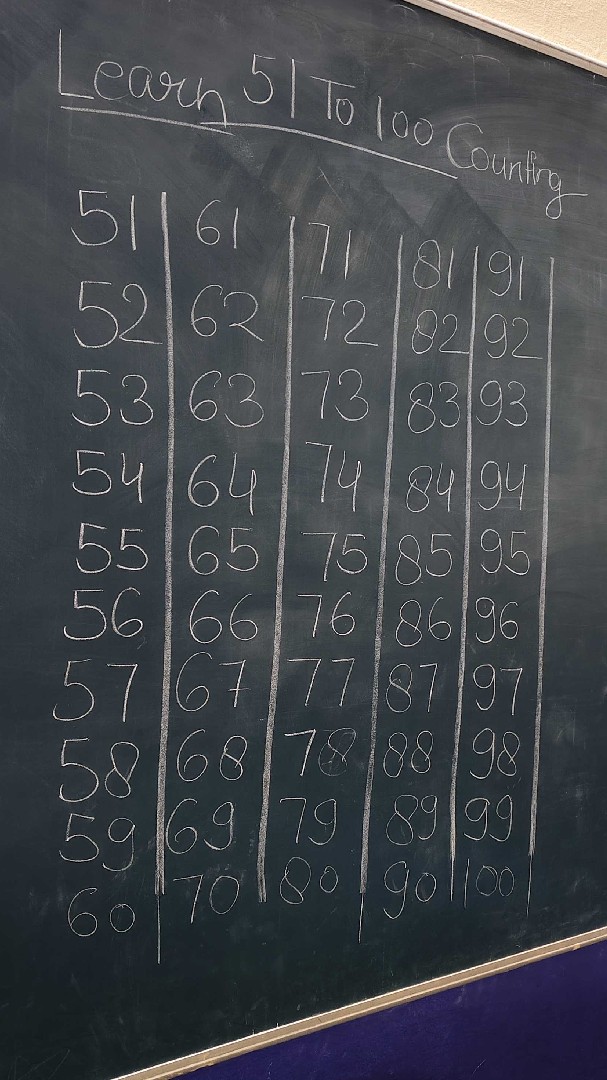 Learn 51 To 100 Counting
51 61 71 81 91
52 62 72 82 92
53 63 73 83 93
54 64 74 84 94
55 65 75 85 95
56 66 76 86 96
57 67 77 87 97
58 68 78 88 98
59 69 79 89 99
60 70 80 90 100